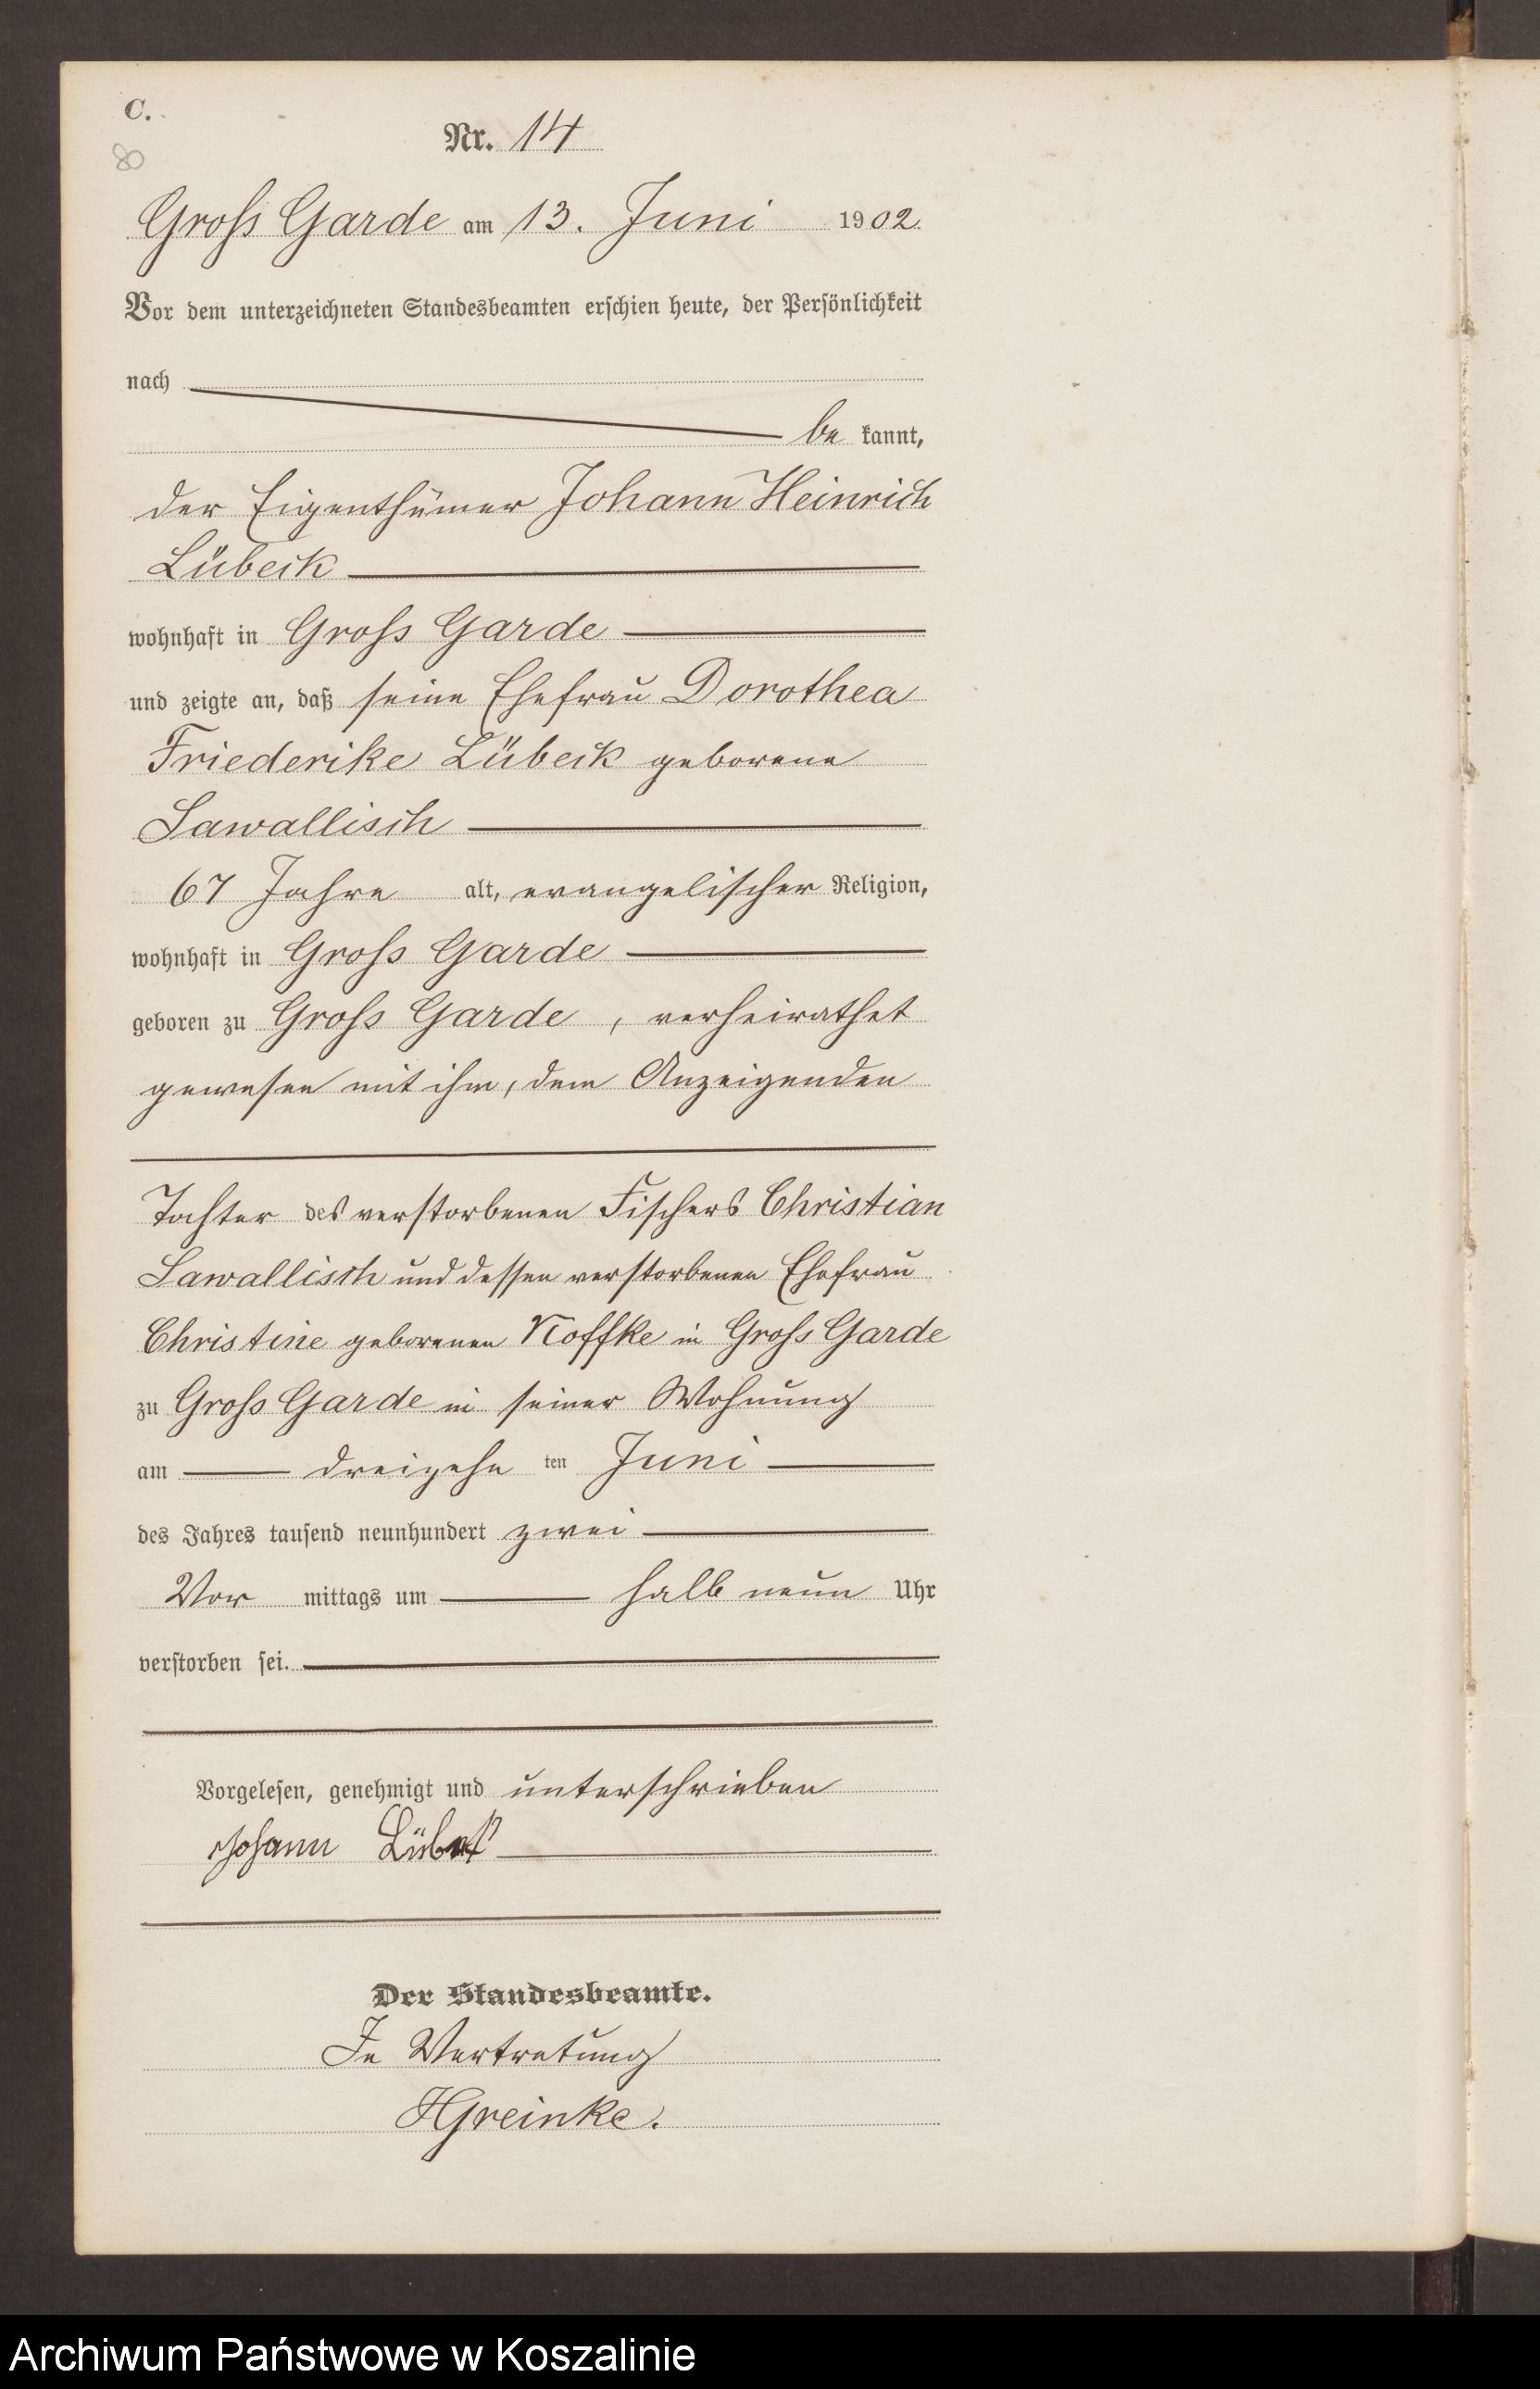 C.
80
Nr. 14
Groß Garde am 13. Juni 1902.
Vor dem unterzeichneten Standesbeamten erschien heute, der Persönlichkeit
nach
be kannt,
der Eigenthümer Johann Heinrich
Lübeck
wohnhaft in Groß Garde
und zeigte an, daß seine Ehefrau Dorothea
Friederike Lübeck geborene
Sawallisch
67 Jahre alt, evangelischer Religion,
wohnhaft in Groß Garde
geboren zu Groß Garde, verheirathet
gewesen mit ihm, dem Anzeigenden
Tochter des verstorbenen Fischers Christian
Sawallisch und dessen verstorbenen Ehefrau
Christine geborenen Noffke in Groß Garde
zu Groß Garde in seiner Wohnung
am dreizehn ten Juni
des Jahres tausend neunhundert zwei
Vor mittags um halb neun Uhr
verstorben sei.
Vorgelesen, genehmigt und unterschrieben
Johann Lübek
Der Standesbeamte.
In Vertretung
HGreinke.
Archiwum Państwowe w Koszalinie